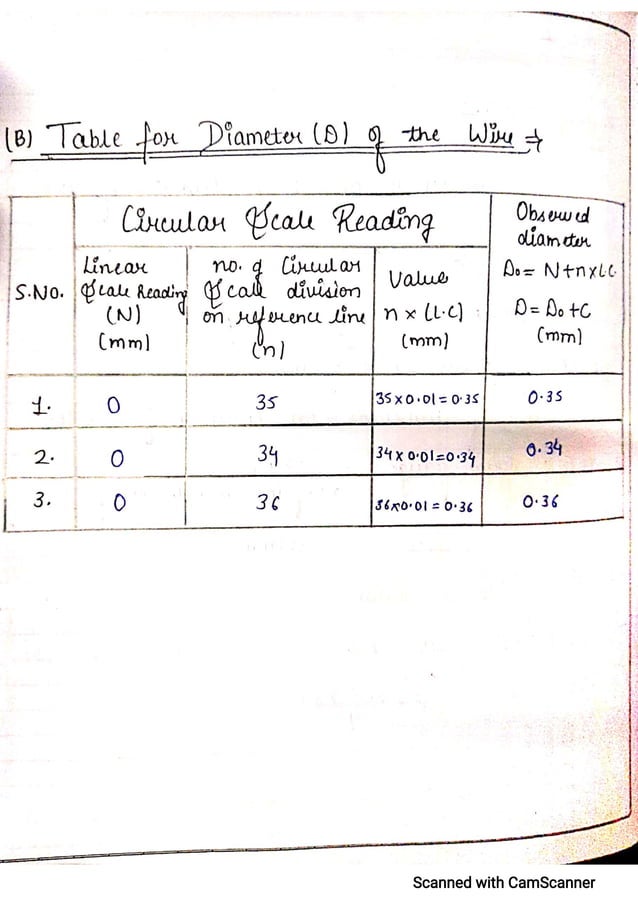 (B) Table for Diameter (D) of the Wire →
Circular Scale Reading
Observed
diameter
D₀ = N+n×L.C.
D = D₀ + C
(mm)
S.No.
Linear
Scale Reading
(N)
(mm)
no. of Circular
Scale division
on reference line
(n)
Value
n × (L.C)
(mm)
1. 0 35 35×0.01=0.35 0.35
2. 0 34 34×0.01=0.34 0.34
3. 0 36 36×0.01=0.36 0.36
Scanned with CamScanner